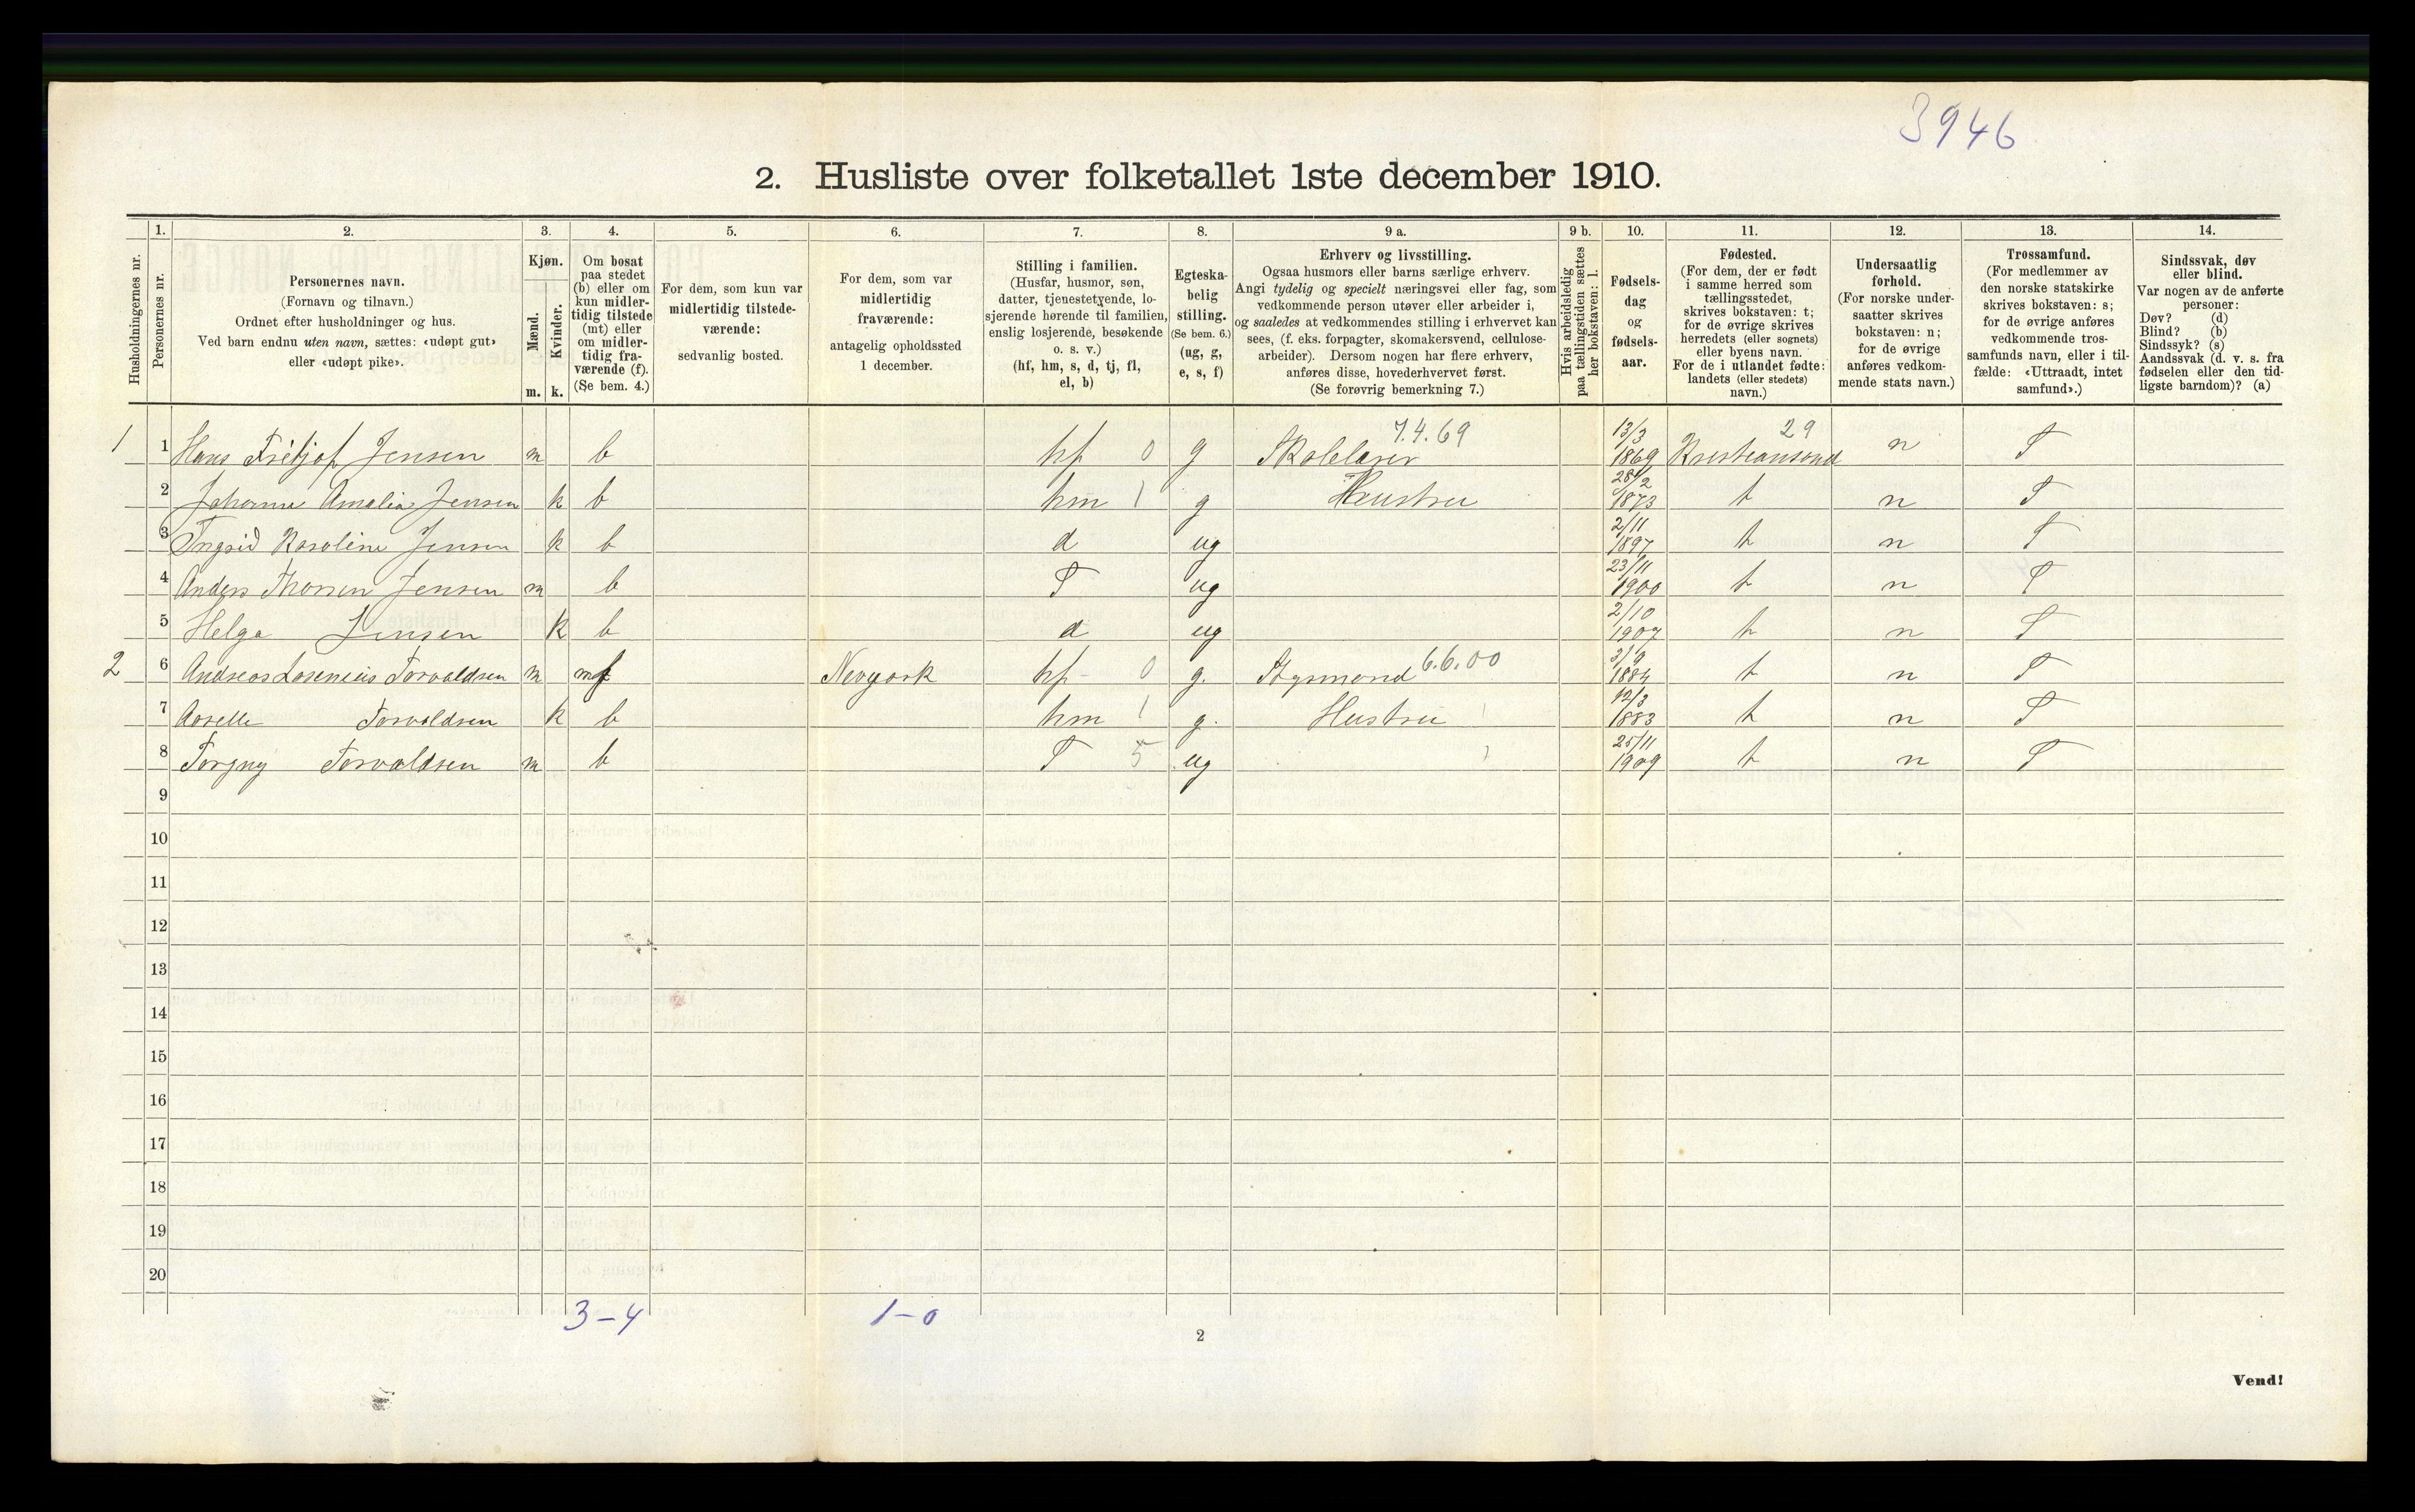 3946
2. Husliste over folketallet 1ste december 1910.
Husholdningernes nr.
1. 2. 3. 4. 5. 6. 7. 8. 9 a. 9 b. 10. 11. 12. 13. 14.
Personernes nr.
Personernes navn.
(Fornavn og tilnavn.)
Ordnet efter husholdninger og hus.
Ved barn endnu uten navn, sættes: «udøpt gut»
eller «udøpt pike».
Kjøn.
Mænd.
Kvinder.
m. k.
Om bosat
paa stedet
(b) eller om
kun midler-
tidig tilstede
(mt) eller
om midler-
tidig fra-
værende (f).
(Se bem. 4.)
For dem, som kun var
midlertidig tilstede-
værende:
sedvanlig bosted.
For dem, som var
midlertidig
fraværende:
antagelig opholdssted
1 december.
Stilling i familien.
(Husfar, husmor, søn,
datter, tjenestetyende, lo-
sjerende hørende til familien,
enslig losjerende, besøkende
o. s. v.)
(hf, hm, s, d, tj, fl,
el, b)
Egteska-
belig
stilling.
(Se bem. 6.)
(ug, g,
e, s, f)
Erhverv og livsstilling.
Ogsaa husmors eller barns særlige erhverv.
Angi tydelig og specielt næringsvei eller fag, som
vedkommende person utøver eller arbeider i,
og saaledes at vedkommendes stilling i erhvervet kan
sees, (f. eks. forpagter, skomakersvend, cellulose-
arbeider). Dersom nogen har flere erhverv,
anføres disse, hovederhvervet først.
(Se forøvrig bemerkning 7.)
Hvis arbeidsledig
paa tællingstiden sættes
her bokstaven: l.
Fødsels-
dag
og
fødsels-
aar.
Fødested.
(For dem, der er født
i samme herred som
tællingsstedet,
skrives bokstaven: t;
for de øvrige skrives
herredets (eller sognets)
eller byens navn.
For de i utlandet fødte:
landets (eller stedets)
navn.)
Undersaatlig
forhold.
(For norske under-
saatter skrives
bokstaven: n;
for de øvrige
anføres vedkom-
mende stats navn.)
Trossamfund.
(For medlemmer av
den norske statskirke
skrives bokstaven: s;
for de øvrige anføres
vedkommende tros-
samfunds navn, eller i til-
fælde: «Uttraadt, intet
samfund».)
Sindssvak, døv
eller blind.
Var nogen av de anførte
personer:
Døv? (d)
Blind? (b)
Sindssyk? (s)
Aandssvak (d. v. s. fra
fødselen eller den tid-
ligste barndom)? (a)
1 1 Hans Fritjof Jensen m b hf 0 g Skolelærer 7.4.69 13/3 1869 Kristiansund 29 n S
2 Johanna Amalia Jensen k b hm 1 g Hustru 28/2 1873 t n S
3 Ingrid Karoline Jensen k b d ug 2/11 1897 t n S
4 Anders Thorsen Jensen m b S ug 23/11 1900 t n S
5 Helga Jensen k b d ug 2/10 1907 t n S
2 6 Andreas Torvaldsen m mf Newyork hf 0 g. Styrmand 6.6.00 3/9 1884 t n S
7 Torvaldsen k b hm 1 g. Hustru 12/3 1883 t n S
8 Torgny Torvaldsen m b S 5 ug 25/11 1909 t n S
9
10
11
12
13
14
15
16
17
18
19
20
3-4 1-0
2
Vend!